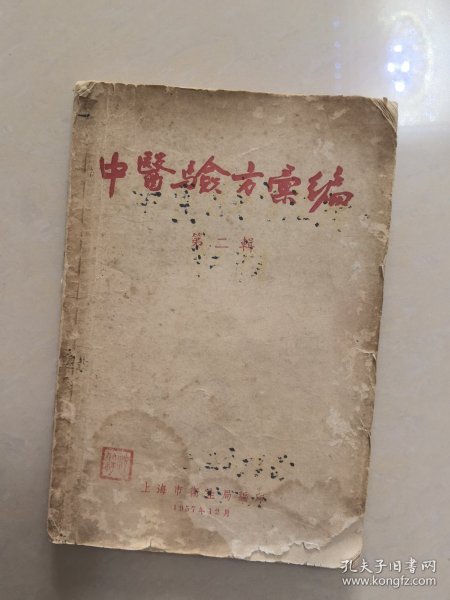 中醫驗方彙編
第二輯
上海市衛生局編印
1957年12月
孔夫子旧书网
www.kongfz.com